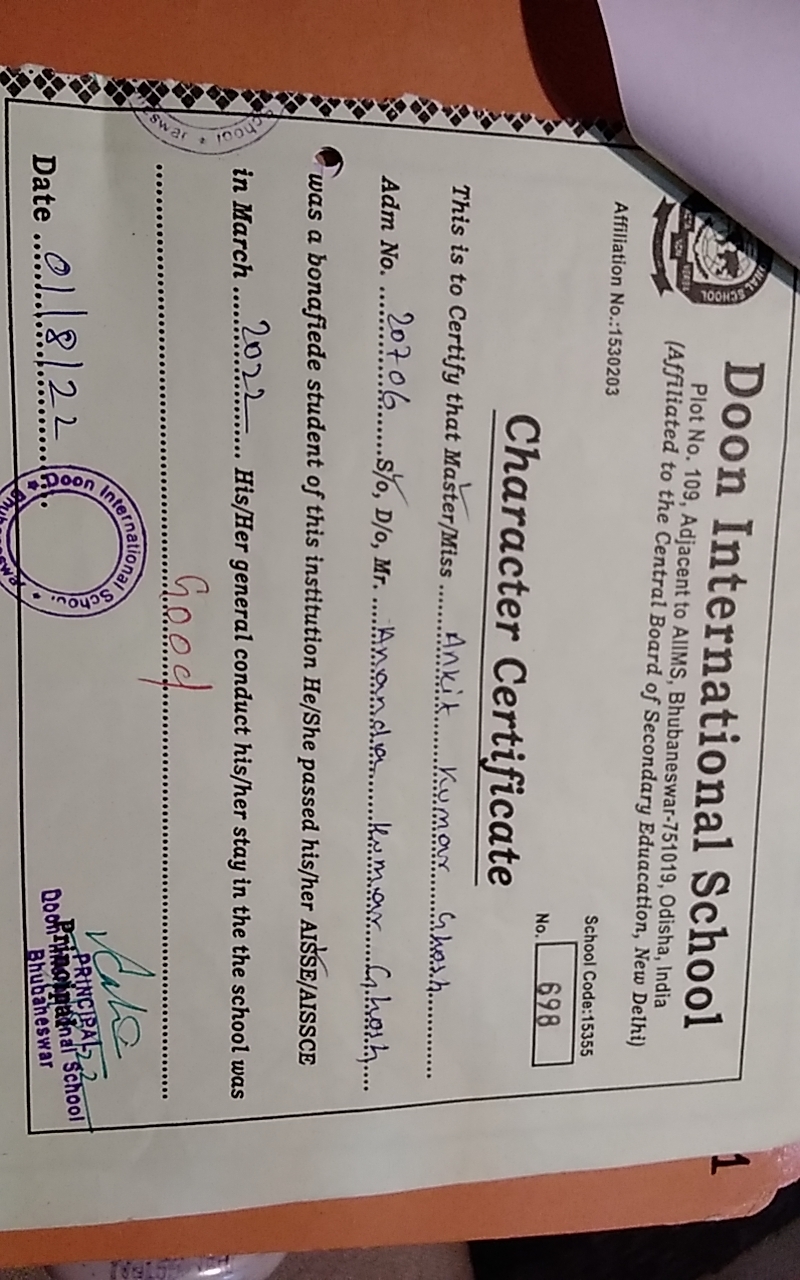 Doon International School
Plot No. 109, Adjacent to AIIMS, Bhubaneswar-751019, Odisha, India
(Affiliated to the Central Board of Secondary Eduacation, New Delhi)
Affiliation No.:1530203
School Code:15355
Character Certificate
No. 698
This is to Certify that Master/Miss Ankit Kumar Ghosh
Adm No. 20706 S/o, D/o, Mr. Ananda Kumar Ghosh
was a bonafiede student of this institution He/She passed his/her AISSE/AISSCE
in March 2022 His/Her general conduct his/her stay in the the school was
Good
Date 01/8/22
Doon International School
Principal
PRINCIPAL
Doon International School
Bhubaneswar
1